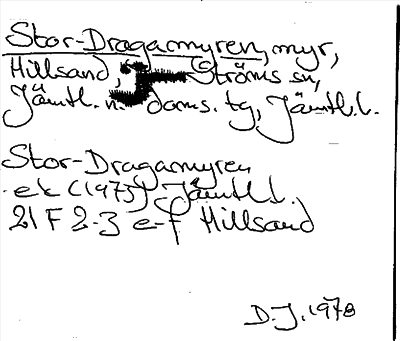 Stor-Dragamyren, myr,
Hillsand, Ströms sn,
Jämtl. n. doms. tg, Jämtl. l.
Stor-Dragamyren
ek (1973) Jämtl. l.
21 F 2-3 e-f Hillsand
D.J. 1978